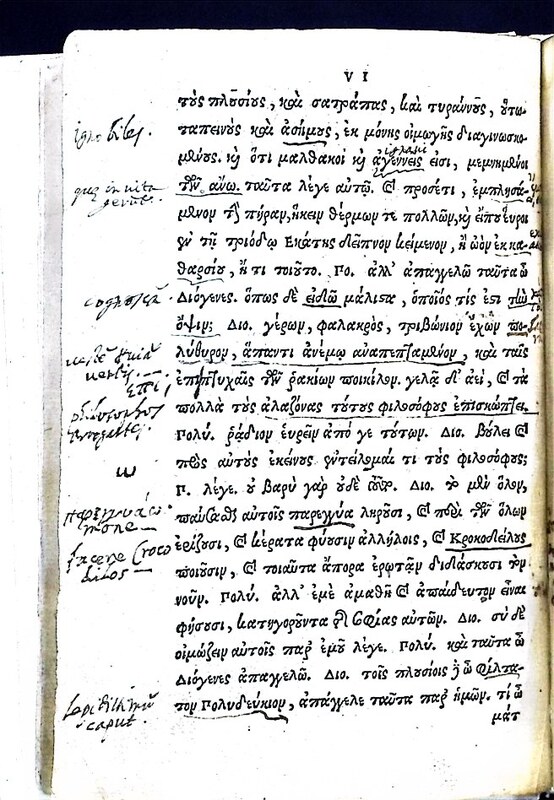 VI
τοὺς πλουσίους, καὶ σατράπας, καὶ τυράννους, οὕτω
ignobiles.
ταπεινοὺς καὶ ἀσήμους, ἐκ μόνης οἰμωγῆς διαγινωσκο-
μένους. καὶ ὅτι μαλθακοὶ καὶ ἀγεννεῖς εἰσι, μεμνημένοι
quae in vita
gerunt.
τῶν ἄνω. ταῦτα λέγε αὐτοῖς. καὶ προσέτι, ἐμπλησά-
μενον τὴν πήραν, ἥκειν θέρμων τε πολλῶν, καὶ εἴ που εὕροι
ἐν τῇ τριόδῳ Ἑκάτης δεῖπνον κείμενον, ἢ ὠὸν ἐκ κα-
θαρσίου, ἤ τι τοιοῦτο. Πο. ἀλλ' ἀπαγγελῶ ταῦτα ὦ
Διόγενες. ὅπως δὲ εἰδῶ μάλιστα, ὁποῖός τίς ἐστι τὴν
ὄψιν; Διο. γέρων, φαλακρὸς, τριβώνιον ἔχων πο-
λύθυρον, ἅπαντι ἀνέμῳ ἀναπεπταμένον, καὶ ταῖς
ἐπιπτυχαῖς τῶν ῥακίων ποικίλον. γελᾷ δ' ἀεὶ, καὶ τὰ
πολλὰ τοὺς ἀλαζόνας τούτους φιλοσόφους ἐπισκώπτει.
Πολύ. ῥᾴδιον εὑρεῖν ἀπό γε τούτων. Διο. βούλει καὶ
ω
πρὸς αὐτοὺς ἐκείνους ἐντείλομαί τι τοὺς φιλοσόφους;
Π. λέγε. οὐ βαρὺ γὰρ οὐδὲ τοῦτο. Διο. τὸ μὲν ὅλον,
παύσασθαι αὐτοῖς παρεγγύα ληροῦσι, καὶ περὶ τῶν ὅλων
ἐρίζουσι, καὶ κέρατα φύουσιν ἀλλήλοις, καὶ Κροκοδείλους
facere Croco
dilos
ποιοῦσιν, καὶ τοιαῦτα ἄπορα ἐρωτᾶν διδάσκουσι τὸν
νοῦν. Πολύ. ἀλλ' ἐμὲ ἀμαθῆ καὶ ἀπαίδευτον εἶναι
φήσουσι, κατηγοροῦντα τῆς σοφίας αὐτῶν. Διο. σὺ δὲ
οἰμώζειν αὐτοῖς παρ' ἐμοῦ λέγε. Πολύ. καὶ ταῦτα ὦ
Διόγενες ἀπαγγελῶ. Διο. τοῖς πλουσίοις δ' ὦ φίλτα-
caput.
τον Πολυδεύκιον, ἀπάγγελε ταῦτα παρ' ἡμῶν. τί ὦ
μάτ